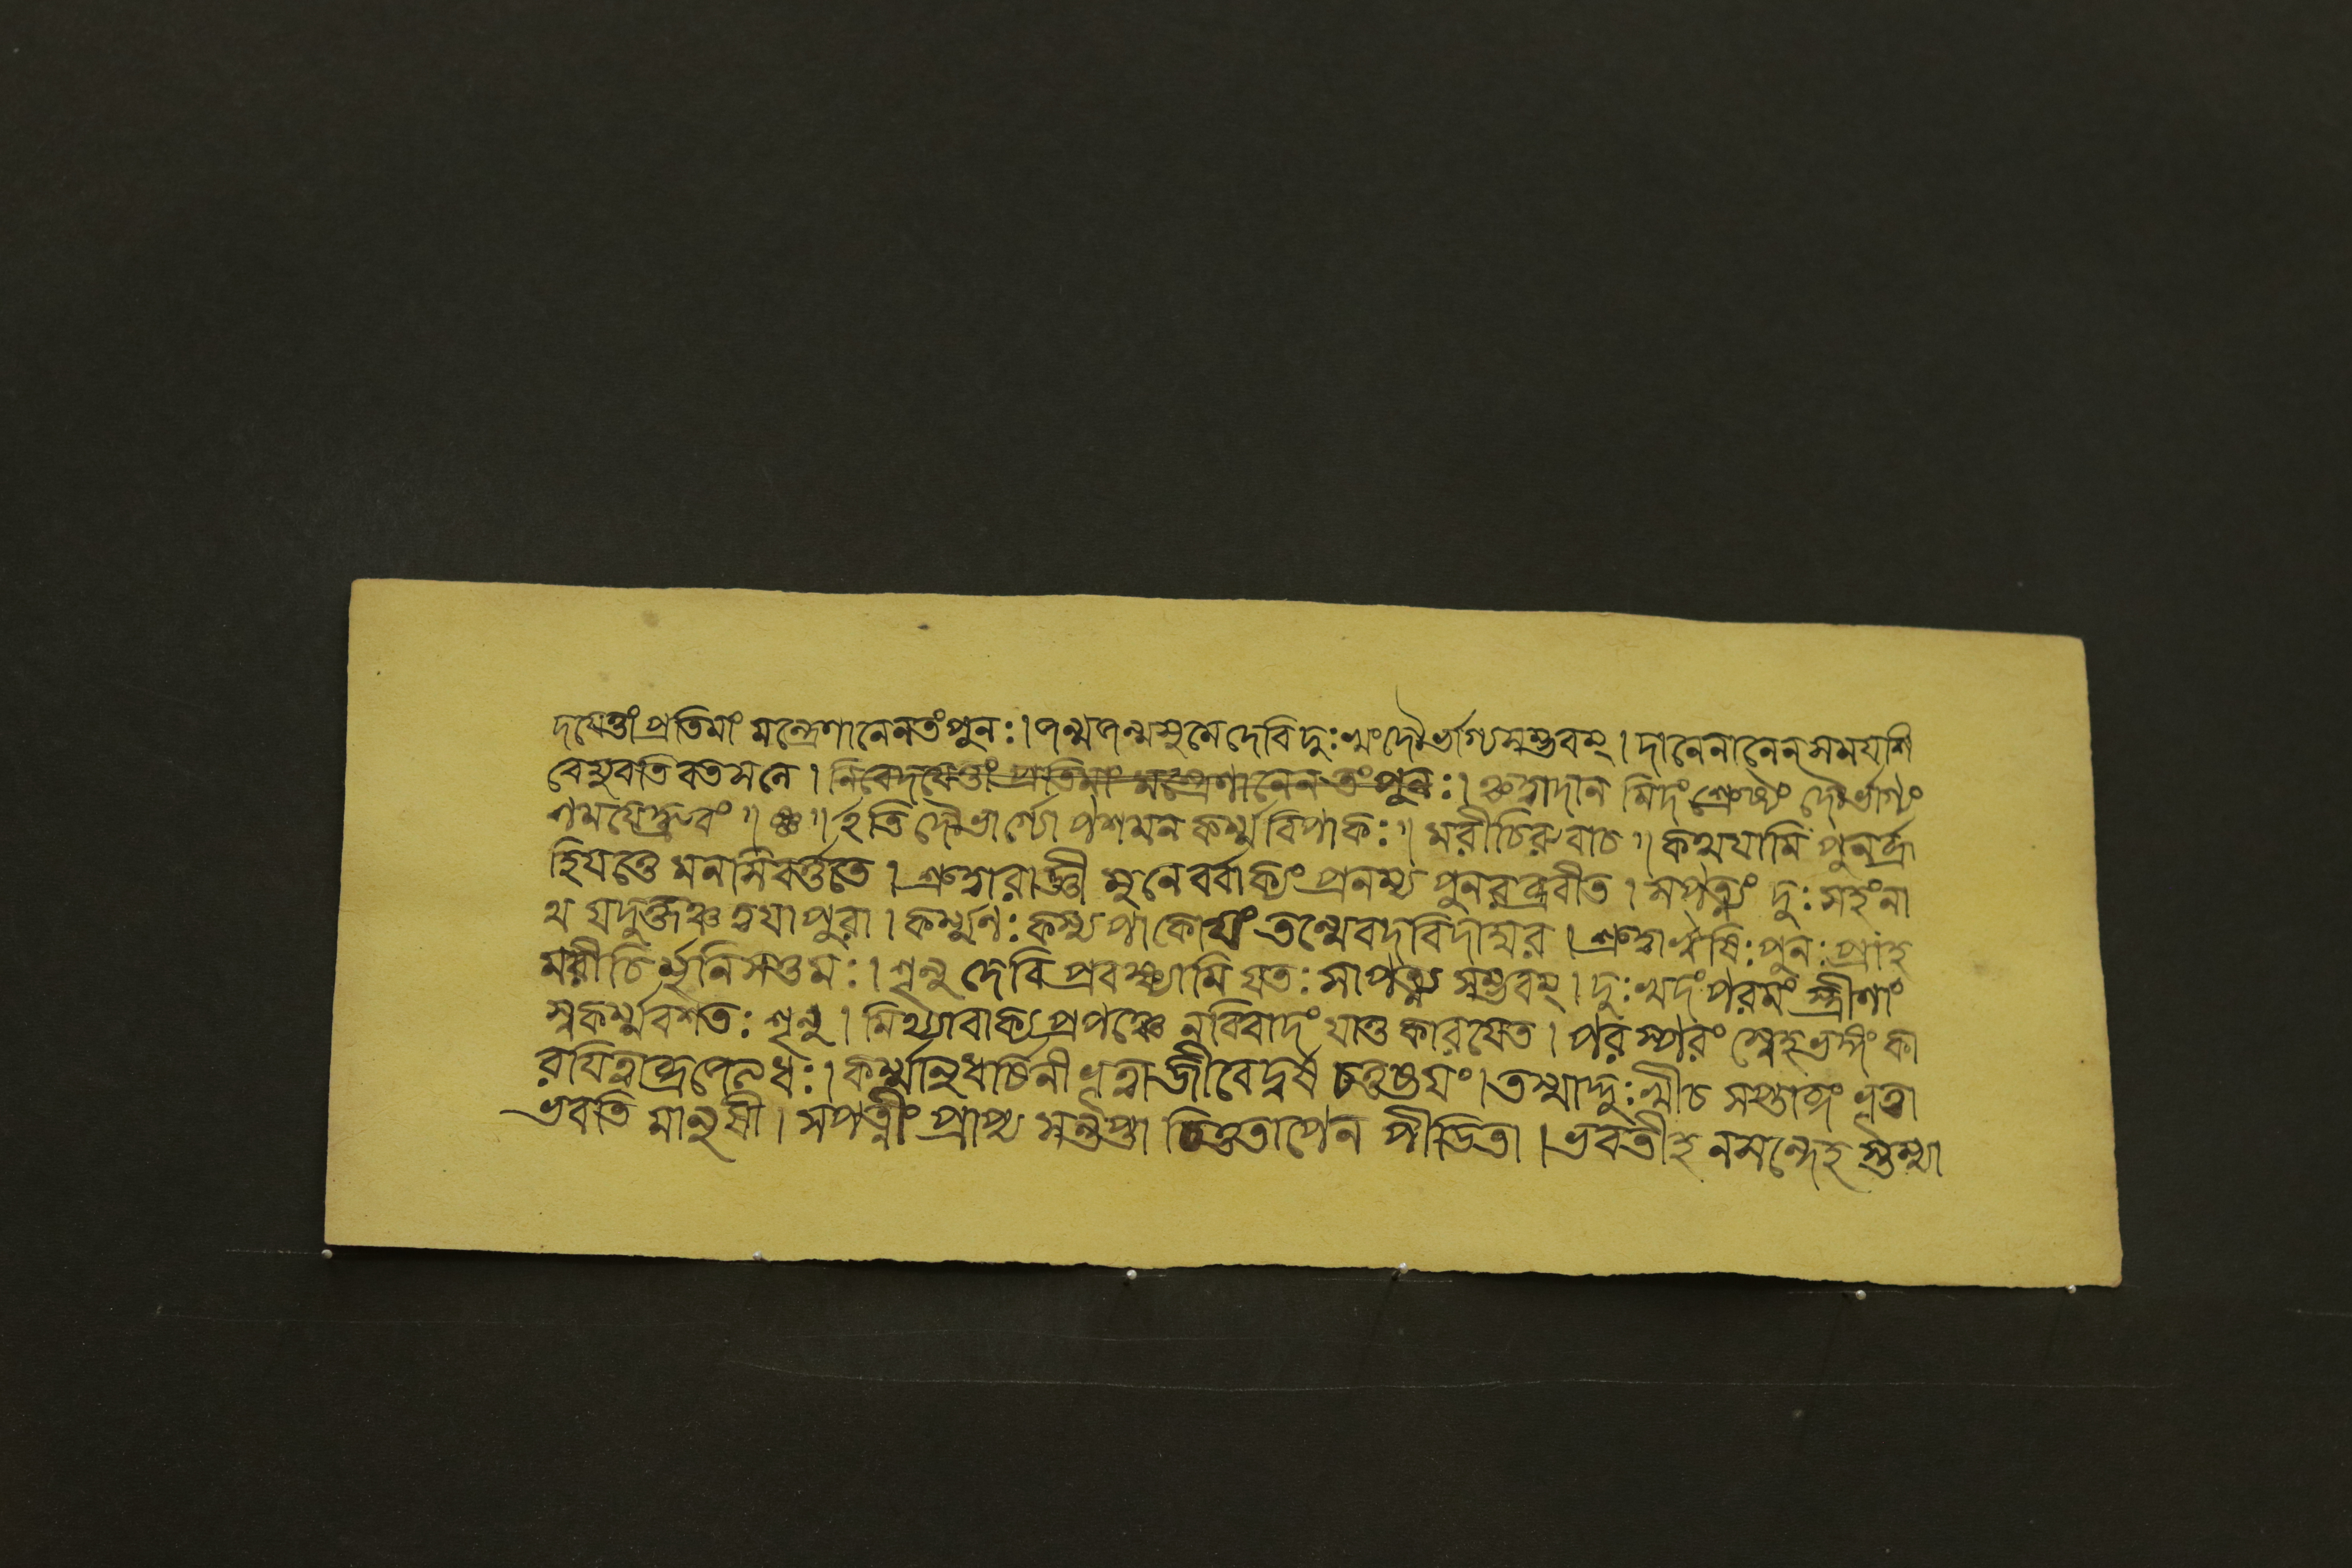 দয়েত্তাং প্রতিমাং মন্ত্রেণানেনতংপুনঃ। জন্মজন্মসুমেদেবি দুঃখংদৌর্ভাগ্যসম্ভবম্। দানেনানেনসময়শি
বেযুবতি বতসনে। নিবেদয়েত্তাং প্রতিমাং মন্ত্রেণানেন তংপুনঃ। শ্রুত্বাদান মিদং শ্রেষ্ঠং দৌর্ভাগ্যং
শময়েদ্ধ্রুবং॥ ঞ্চ॥ ইতি দৌর্ভাগ্যোপশমন কর্ম্মবিপাকঃ॥ মরীচিরুবাচ॥ কথয়ামি পুনর্ব্রূ
হিযত্তে মনসিবর্ত্ততে। শ্রুত্বারাজ্ঞী মুনেবর্বাক্যং প্রনম্য পুনরব্রবীত। সপত্ন্যং দুঃসহংনা
থ যদুক্তঞ্চত্বয়াপুরা। কর্ম্মনঃ কস্যপাকোয়ং তন্মেবদবিদাম্বর। শ্রুত্বাঋষিঃ পুনঃ প্রাহ
মরীচির্ম্মুনিসত্তমঃ। শৃনু দেবি প্রবক্ষ্যামি যতঃ সাপত্ন্য সম্ভবম্। দুঃখদং পরমং স্ত্রীণাং
স্বকর্ম্মবশতঃ শৃনু। মিথ্যাবাক্য প্রপঞ্চেনবিবাদং যাতুকারয়েত। পরস্পরং স্নেহভঙ্গং কা
রয়িত্বা কর্ম্মানুধ্বর্চিনী ভূত্বা জীবেদ্বর্ষ চতুষ্টয়ং। তস্মাদ্দুঃখীচ ভূত্বা
ভবতি মানুষী। সপত্নীং প্রাপ্য সন্তপ্তা চিত্ততাপেন পীডিতা। ভবতীহ নসন্দেহ